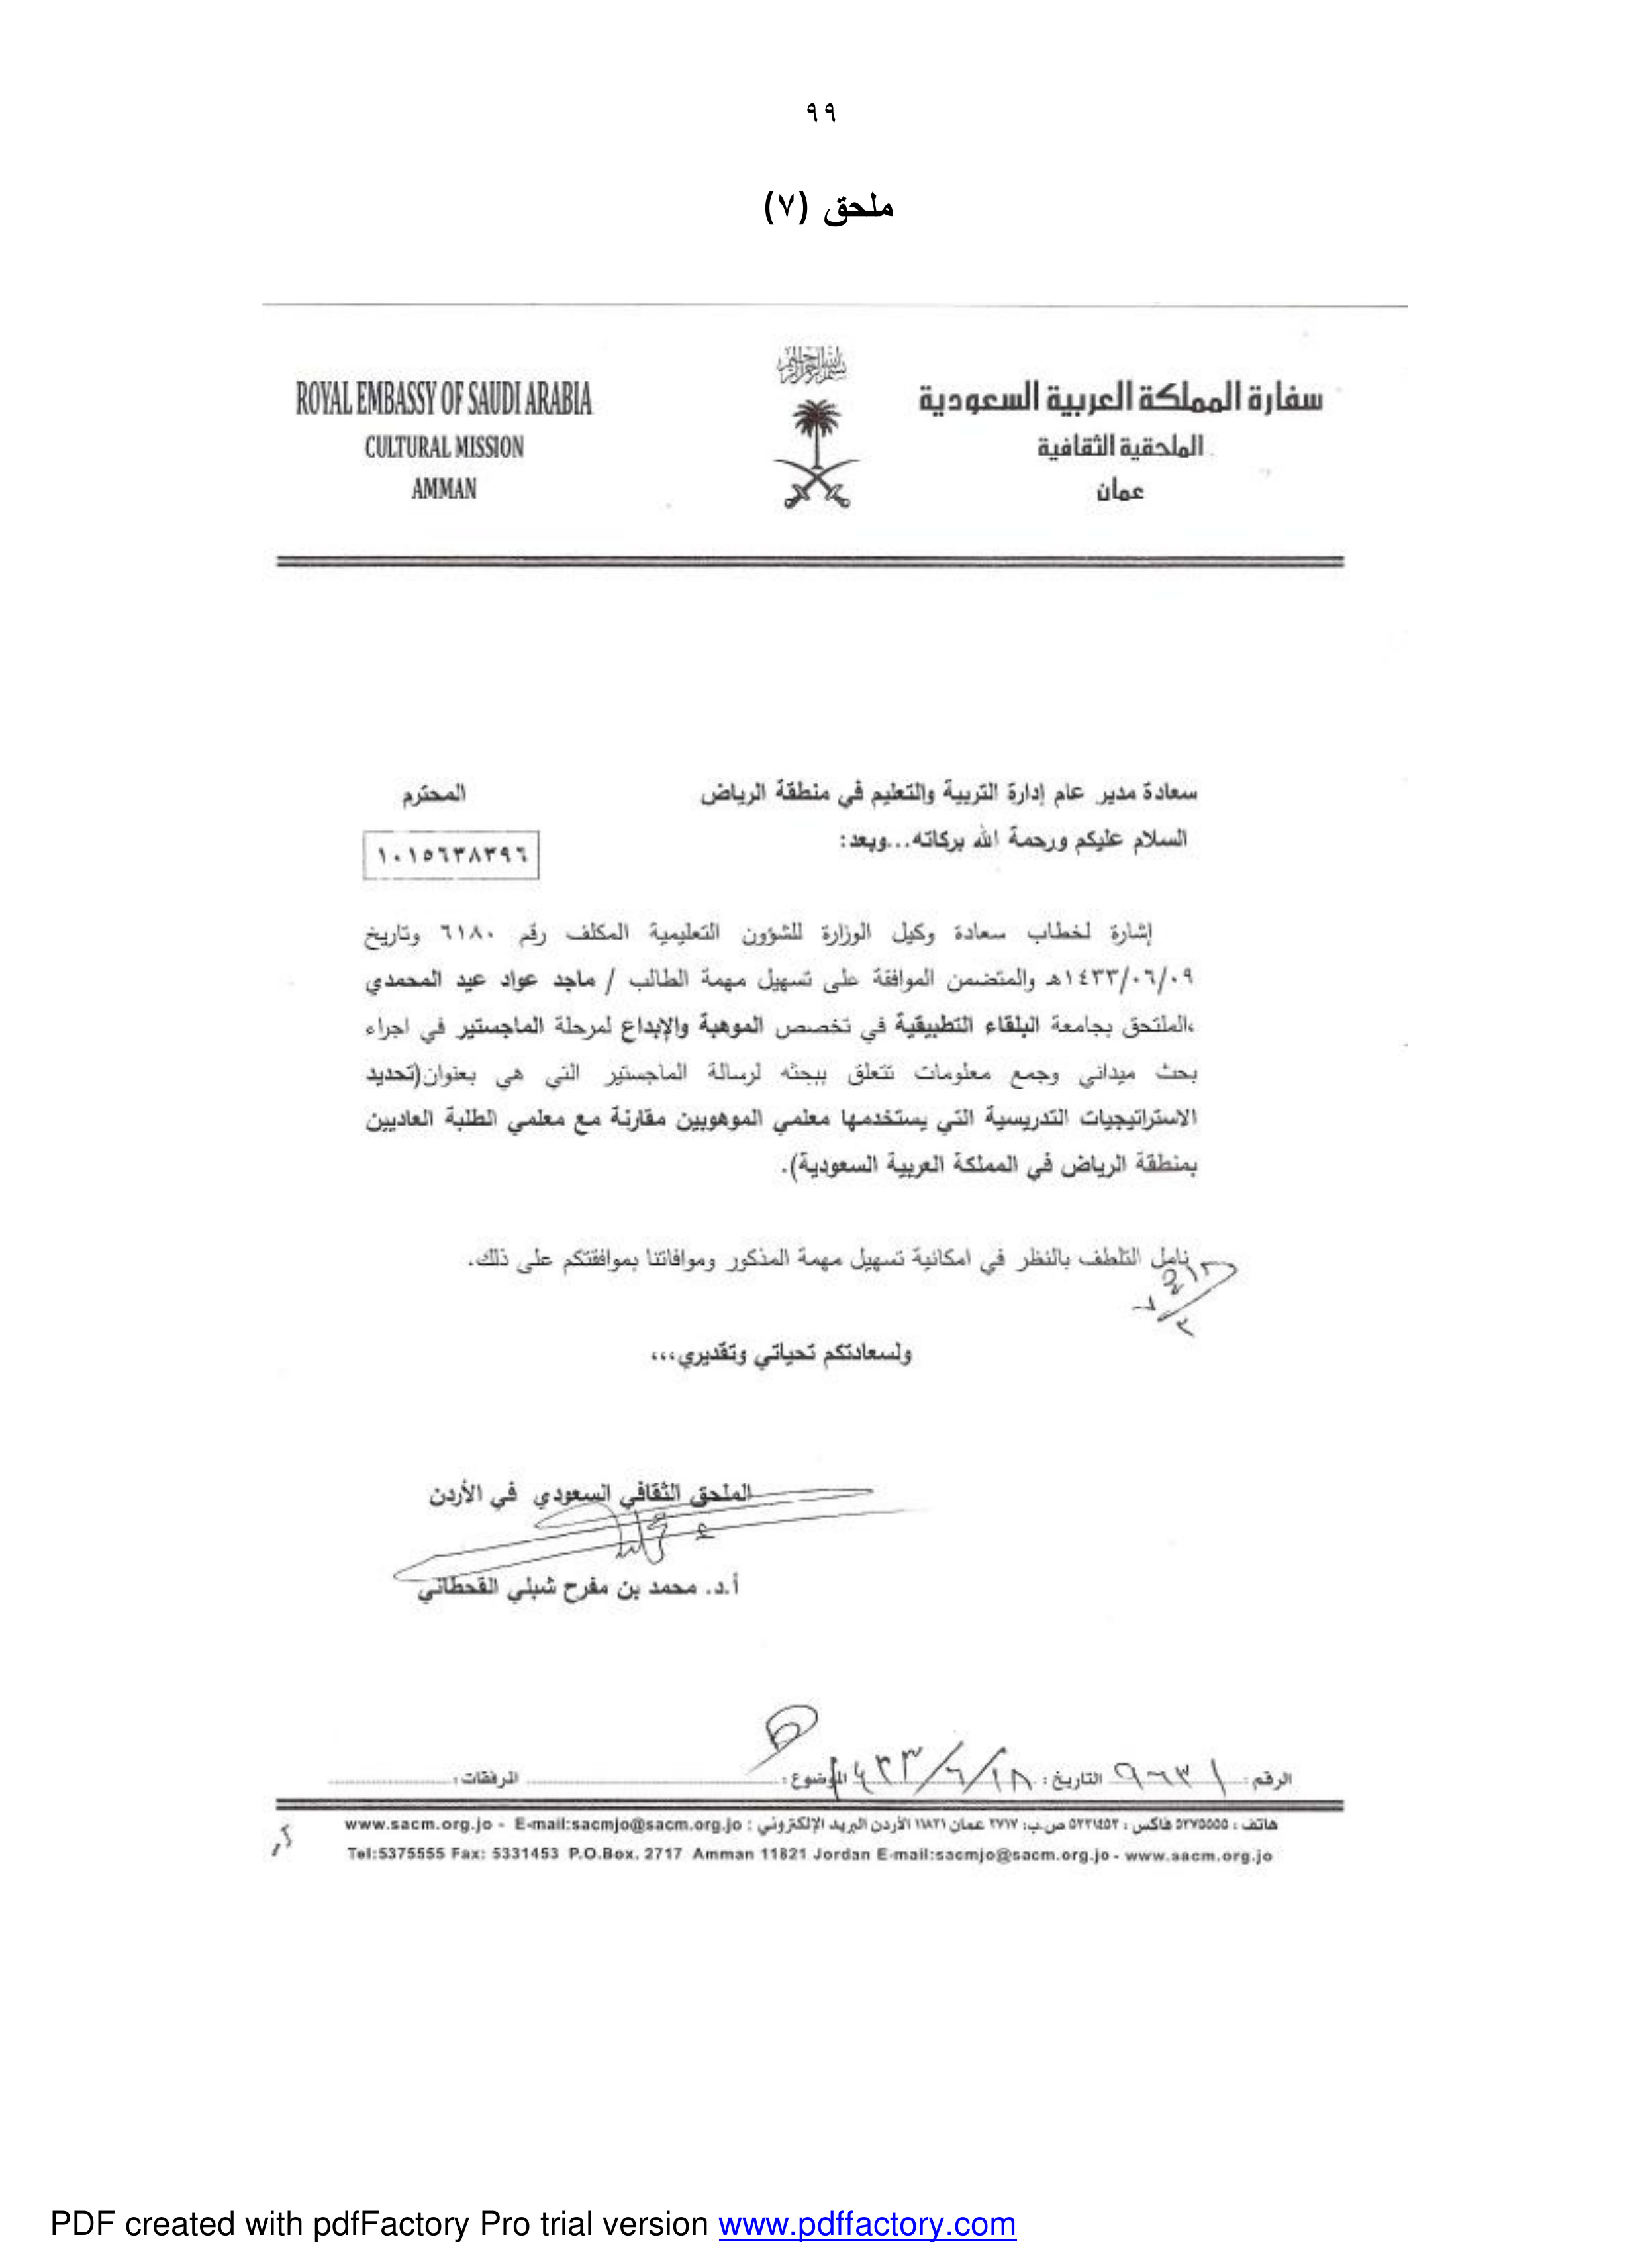 ٩٩
ملحق (٧)
ROYAL EMBASSY OF SAUDI ARABIA
CULTURAL MISSION
AMMAN
سفارة المملكة العربية السعودية
الملحقية الثقافية
عمان
سعادة مدير عام إدارة التربية والتعليم في منطقة الرياض المحترم
السلام عليكم ورحمة الله بركاته...وبعد:
١٠١٥٦٣٨٣٩٦
إشارة لخطاب سعادة وكيل الوزارة للشؤون التعليمية المكلف رقم ٦١٨٠ وتاريخ
١٤٣٣/٠٦/٠٩هـ والمتضمن الموافقة على تسهيل مهمة الطالب / ماجد عواد عيد المحمدي
،الملتحق بجامعة البلقاء التطبيقية في تخصص الموهبة والإبداع لمرحلة الماجستير في اجراء
بحث ميداني وجمع معلومات تتعلق ببحثه لرسالة الماجستير التي هي بعنوان(تحديد
الاستراتيجيات التدريسية التي يستخدمها معلمي الموهوبين مقارنة مع معلمي الطلبة العاديين
بمنطقة الرياض في المملكة العربية السعودية).
نامل التلطف بالنظر في امكانية تسهيل مهمة المذكور وموافاتنا بموافقتكم على ذلك.
ولسعادتكم تحياتي وتقديري،،،
الملحق الثقافي السعودي في الأردن
أ.د. محمد بن مفرح شبلي القحطاني
الرقم: ٩٦٣١ التاريخ: ١٤٣٣/٦/١٨ الموضوع: المرفقات:
هاتف : ٥٣٧٥٥٥٥ فاكس : ٥٣٣١٤٥٣ ص.ب: ٢٧١٧ عمان ١١٨٢١ الأردن البريد الإلكتروني : www.sacm.org.jo - E-mail:sacmjo@sacm.org.jo
Tel:5375555 Fax: 5331453 P.O.Box. 2717 Amman 11821 Jordan E-mail:sacmjo@sacm.org.jo - www.sacm.org.jo
PDF created with pdfFactory Pro trial version www.pdffactory.com